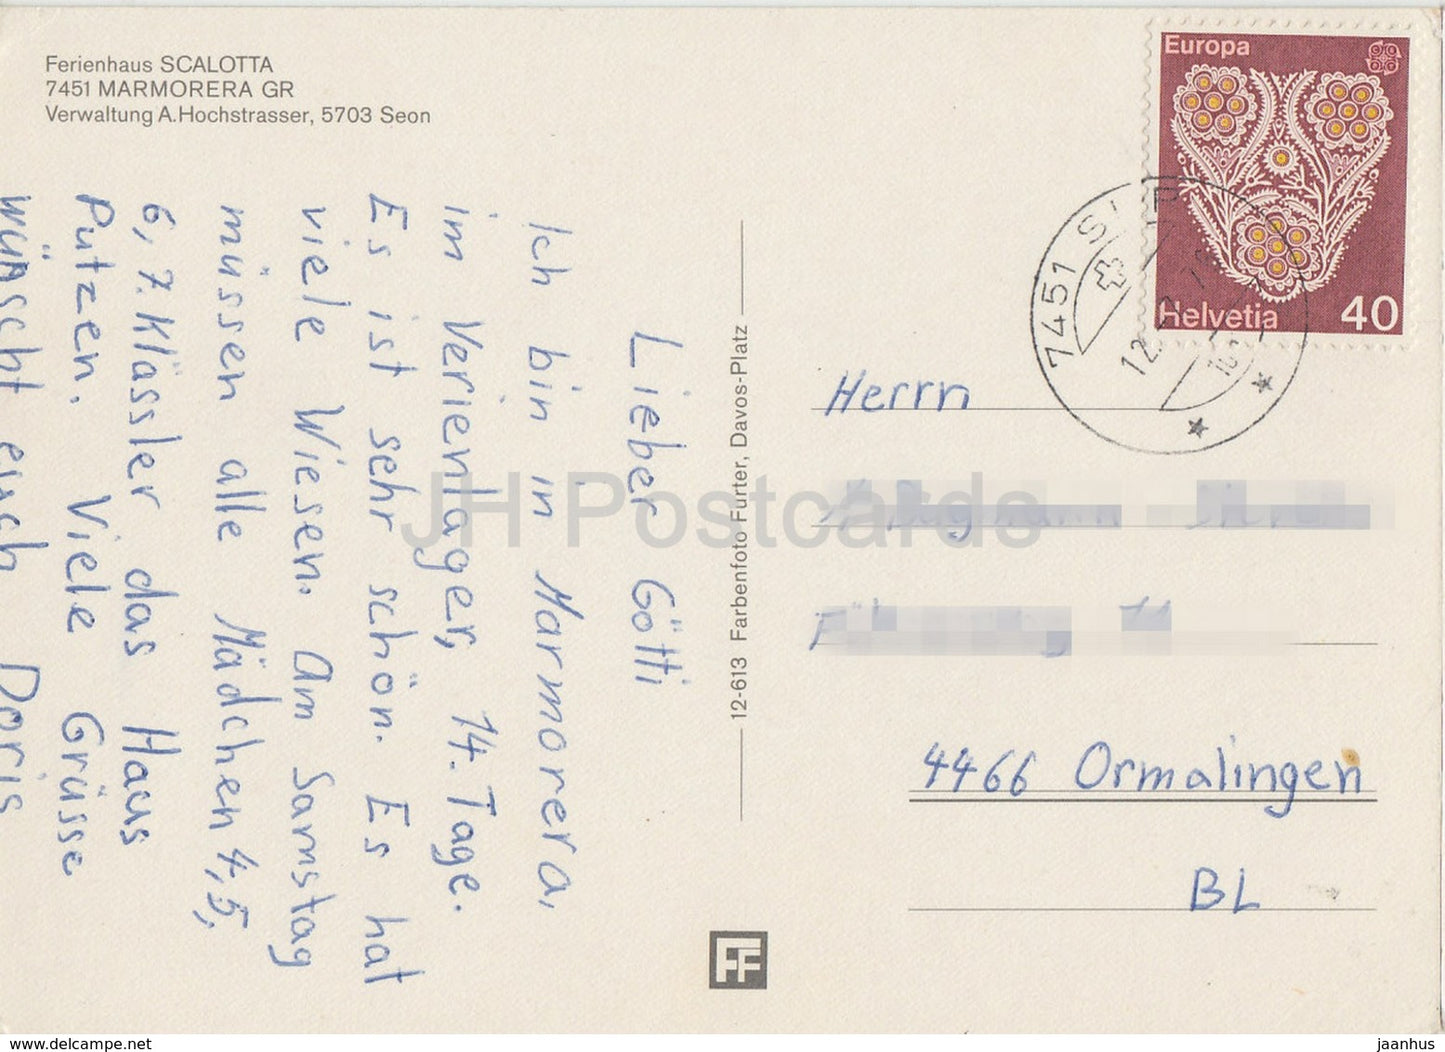 Ferienhaus SCALOTTA
7451 MARMORERA GR
Verwaltung A.Hochstrasser, 5703 Seon
Lieber Götti
Ich bin in Marmorera,
im Verienlager, 14. Tage.
Es ist sehr schön. Es hat
viele Wiesen. Am Samstag
müssen alle Mädchen 4, 5,
6, 7. Klässler das Haus
Putzen. Viele Grüsse
wünscht euch Doris
12-613 Farbenfoto Furter, Davos-Platz
FF
Europa
Helvetia 40
7451
12.
Herrn
4466 Ormalingen
BL
JH Postcards
www.delcampe.net
jaanhus